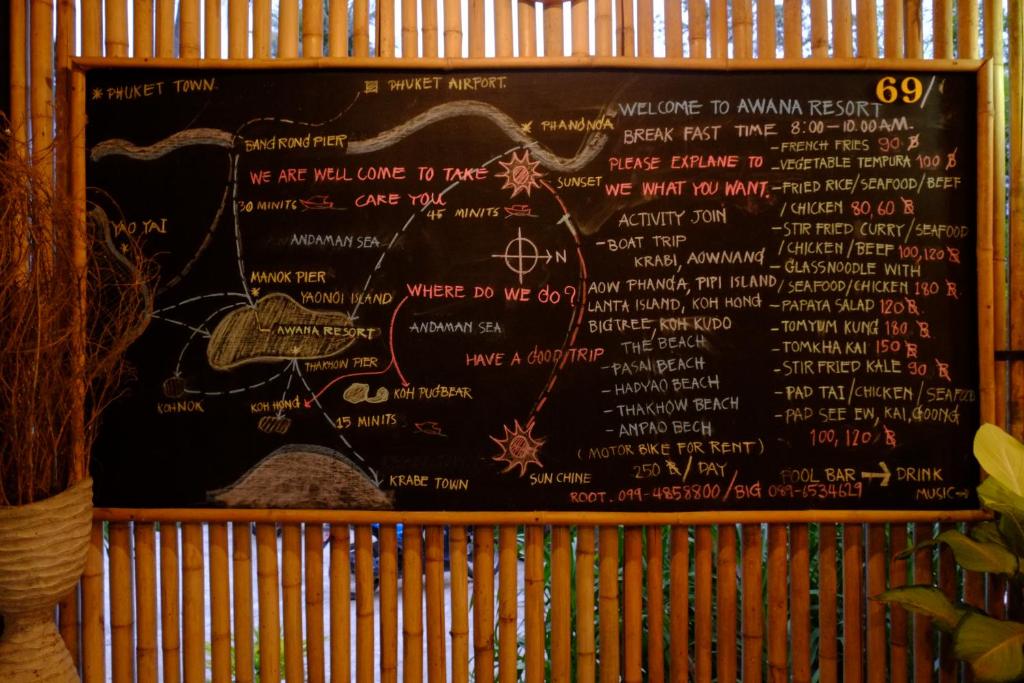 * PHUKET TOWN.
PHUKET AIRPORT.
BANGRONG PIER
* PHANGNGA
WE ARE WELL COME TO TAKE
CARE YOU
SUNSET
30 MINITS
45 MINITS
YAO YAI
ANDAMAN SEA
N
MANOK PIER
YAONOI ISLAND
AWANA RESORT
WHERE DO WE GO?
ANDAMAN SEA
THAKHOW PIER
HAVE A GOOD TRIP
KOH NOK
KOH HONG
KOH PUGBEAR
15 MINITS
KRABE TOWN
SUN CHINE
69/
WELCOME TO AWANA RESORT
BREAK FAST TIME 8:00-10.00 AM.
PLEASE EXPLANE TO
WE WHAT YOU WANT.
ACTIVITY JOIN
- BOAT TRIP
KRABI, AOWNANG
AOW PHANGA, PIPI ISLAND
LANTA ISLAND, KOH HONG
BIGTREE, KOH KUDO
THE BEACH
- PASAI BEACH
- HADYAO BEACH
- THAKHOW BEACH
- ANPAO BECH
(MOTOR BIKE FOR RENT)
250 ฿/DAY
ROOT. 099-4858800/BIG 089-6534629
- FRENCH FRIES 90 ฿
- VEGETABLE TEMPURA 100 ฿
- FRIED RICE/SEAFOOD/BEEF
/CHICKEN 80,60 ฿
- STIR FRIED CURRY/SEAFOOD
/CHICKEN/BEEF 100,120 ฿
- GLASSNOODLE WITH
/SEAFOOD/CHICKEN 180 ฿.
- PAPAYA SALAD 120 ฿
- TOMYUM KUNG 180 ฿.
- TOMKHA KAI 150 ฿
- STIR FRIED KALE 90 ฿
- PAD TAI/CHICKEN/SEAFOOD
- PAD SEE EW, KAI, GOONG
100,120 ฿
FOOL BAR → DRINK
MUSIC